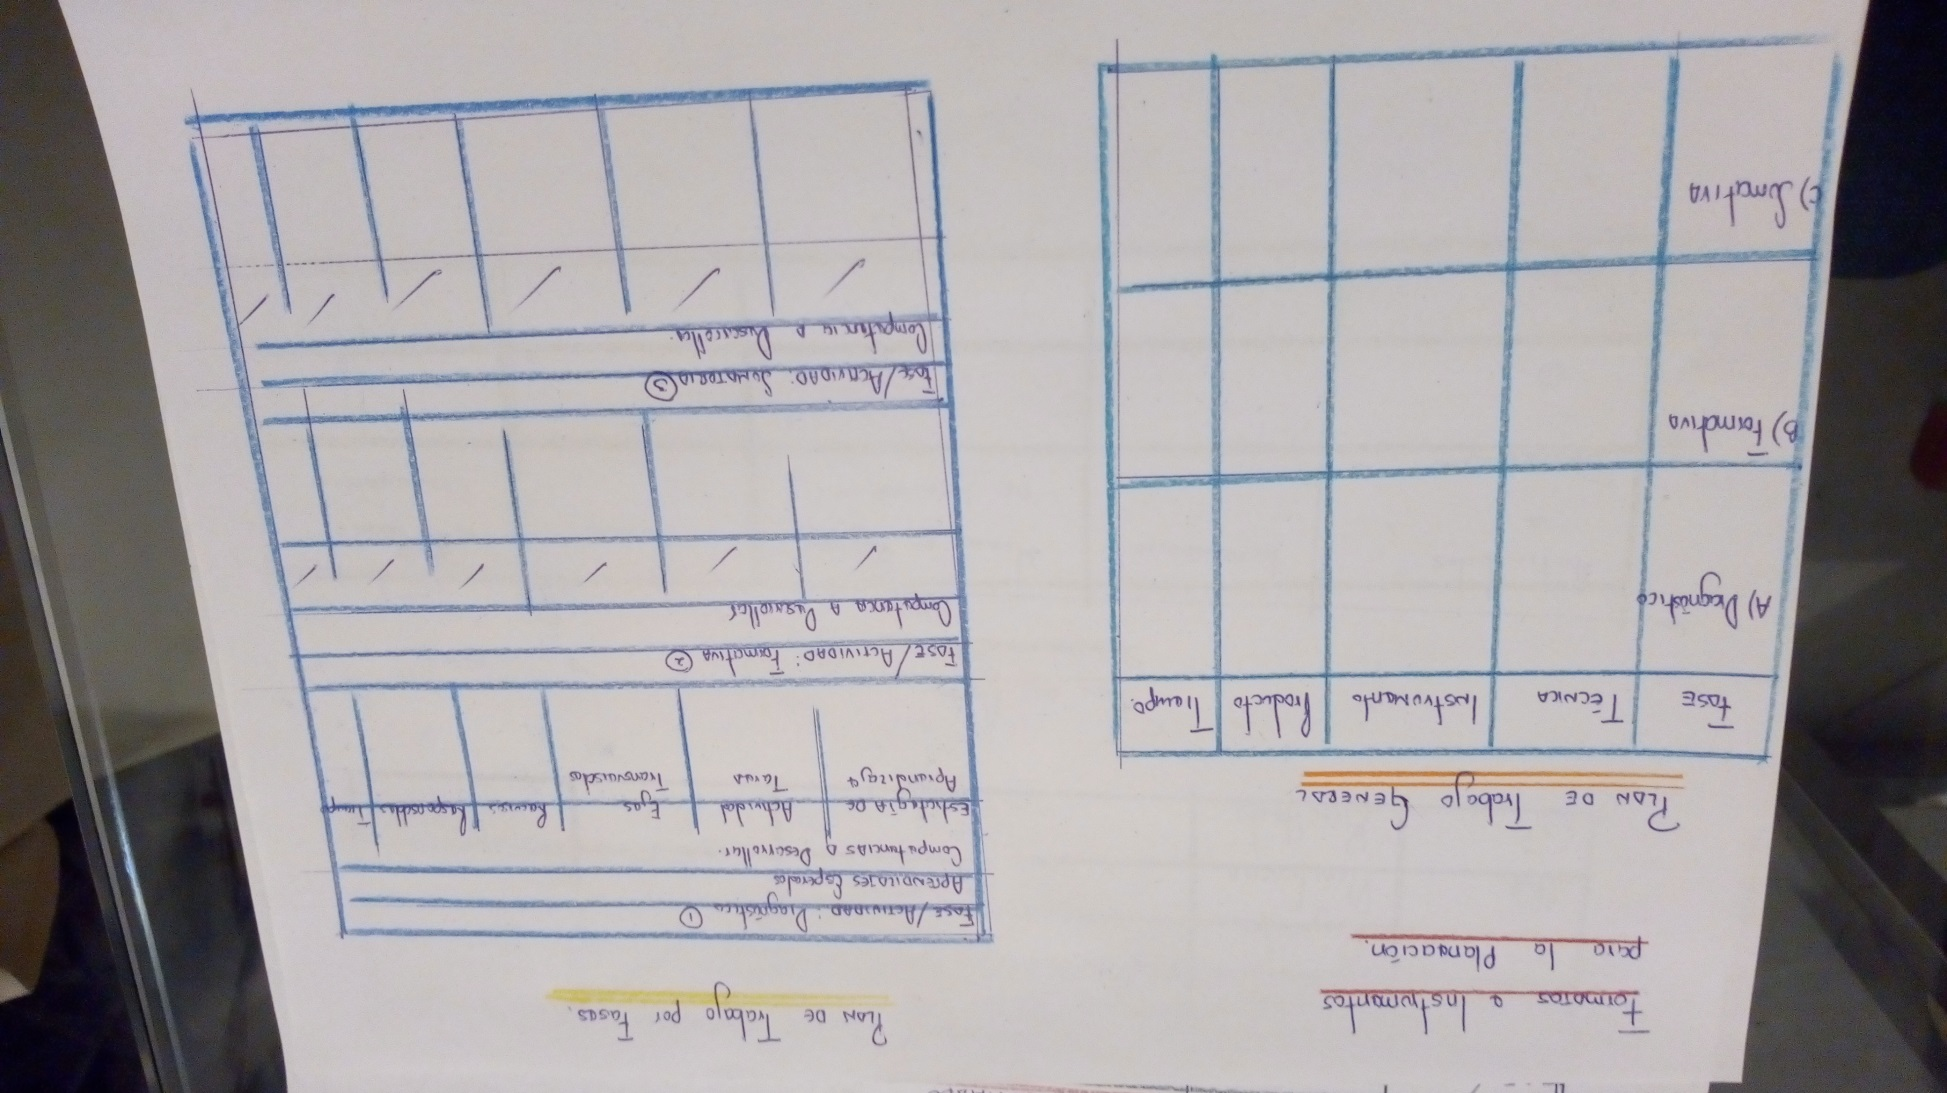 Formatos e Instrumentos
para la Planeación.
PLAN DE Trabajo GENERAL
FASE TÉCNICA Instrumento Producto Tiempo.
A) Diagnóstico
B) Formativa
C) Sumativa
PLAN DE Trabajo por Fases.
FASE/ACTIVIDAD: Diagnóstica ①
APRENDIZAJES Esperados
Competencias a Desarrollar.
Estrategia DE Actividad Ejes Recursos Responsables Tiempo
Aprendizaje Tareas Transversales
FASE/ACTIVIDAD: Formativa ②
Competencia A Desarrollar
FASE/ACTIVIDAD: SUMATORIA ③
Competencia a Desarrollar.